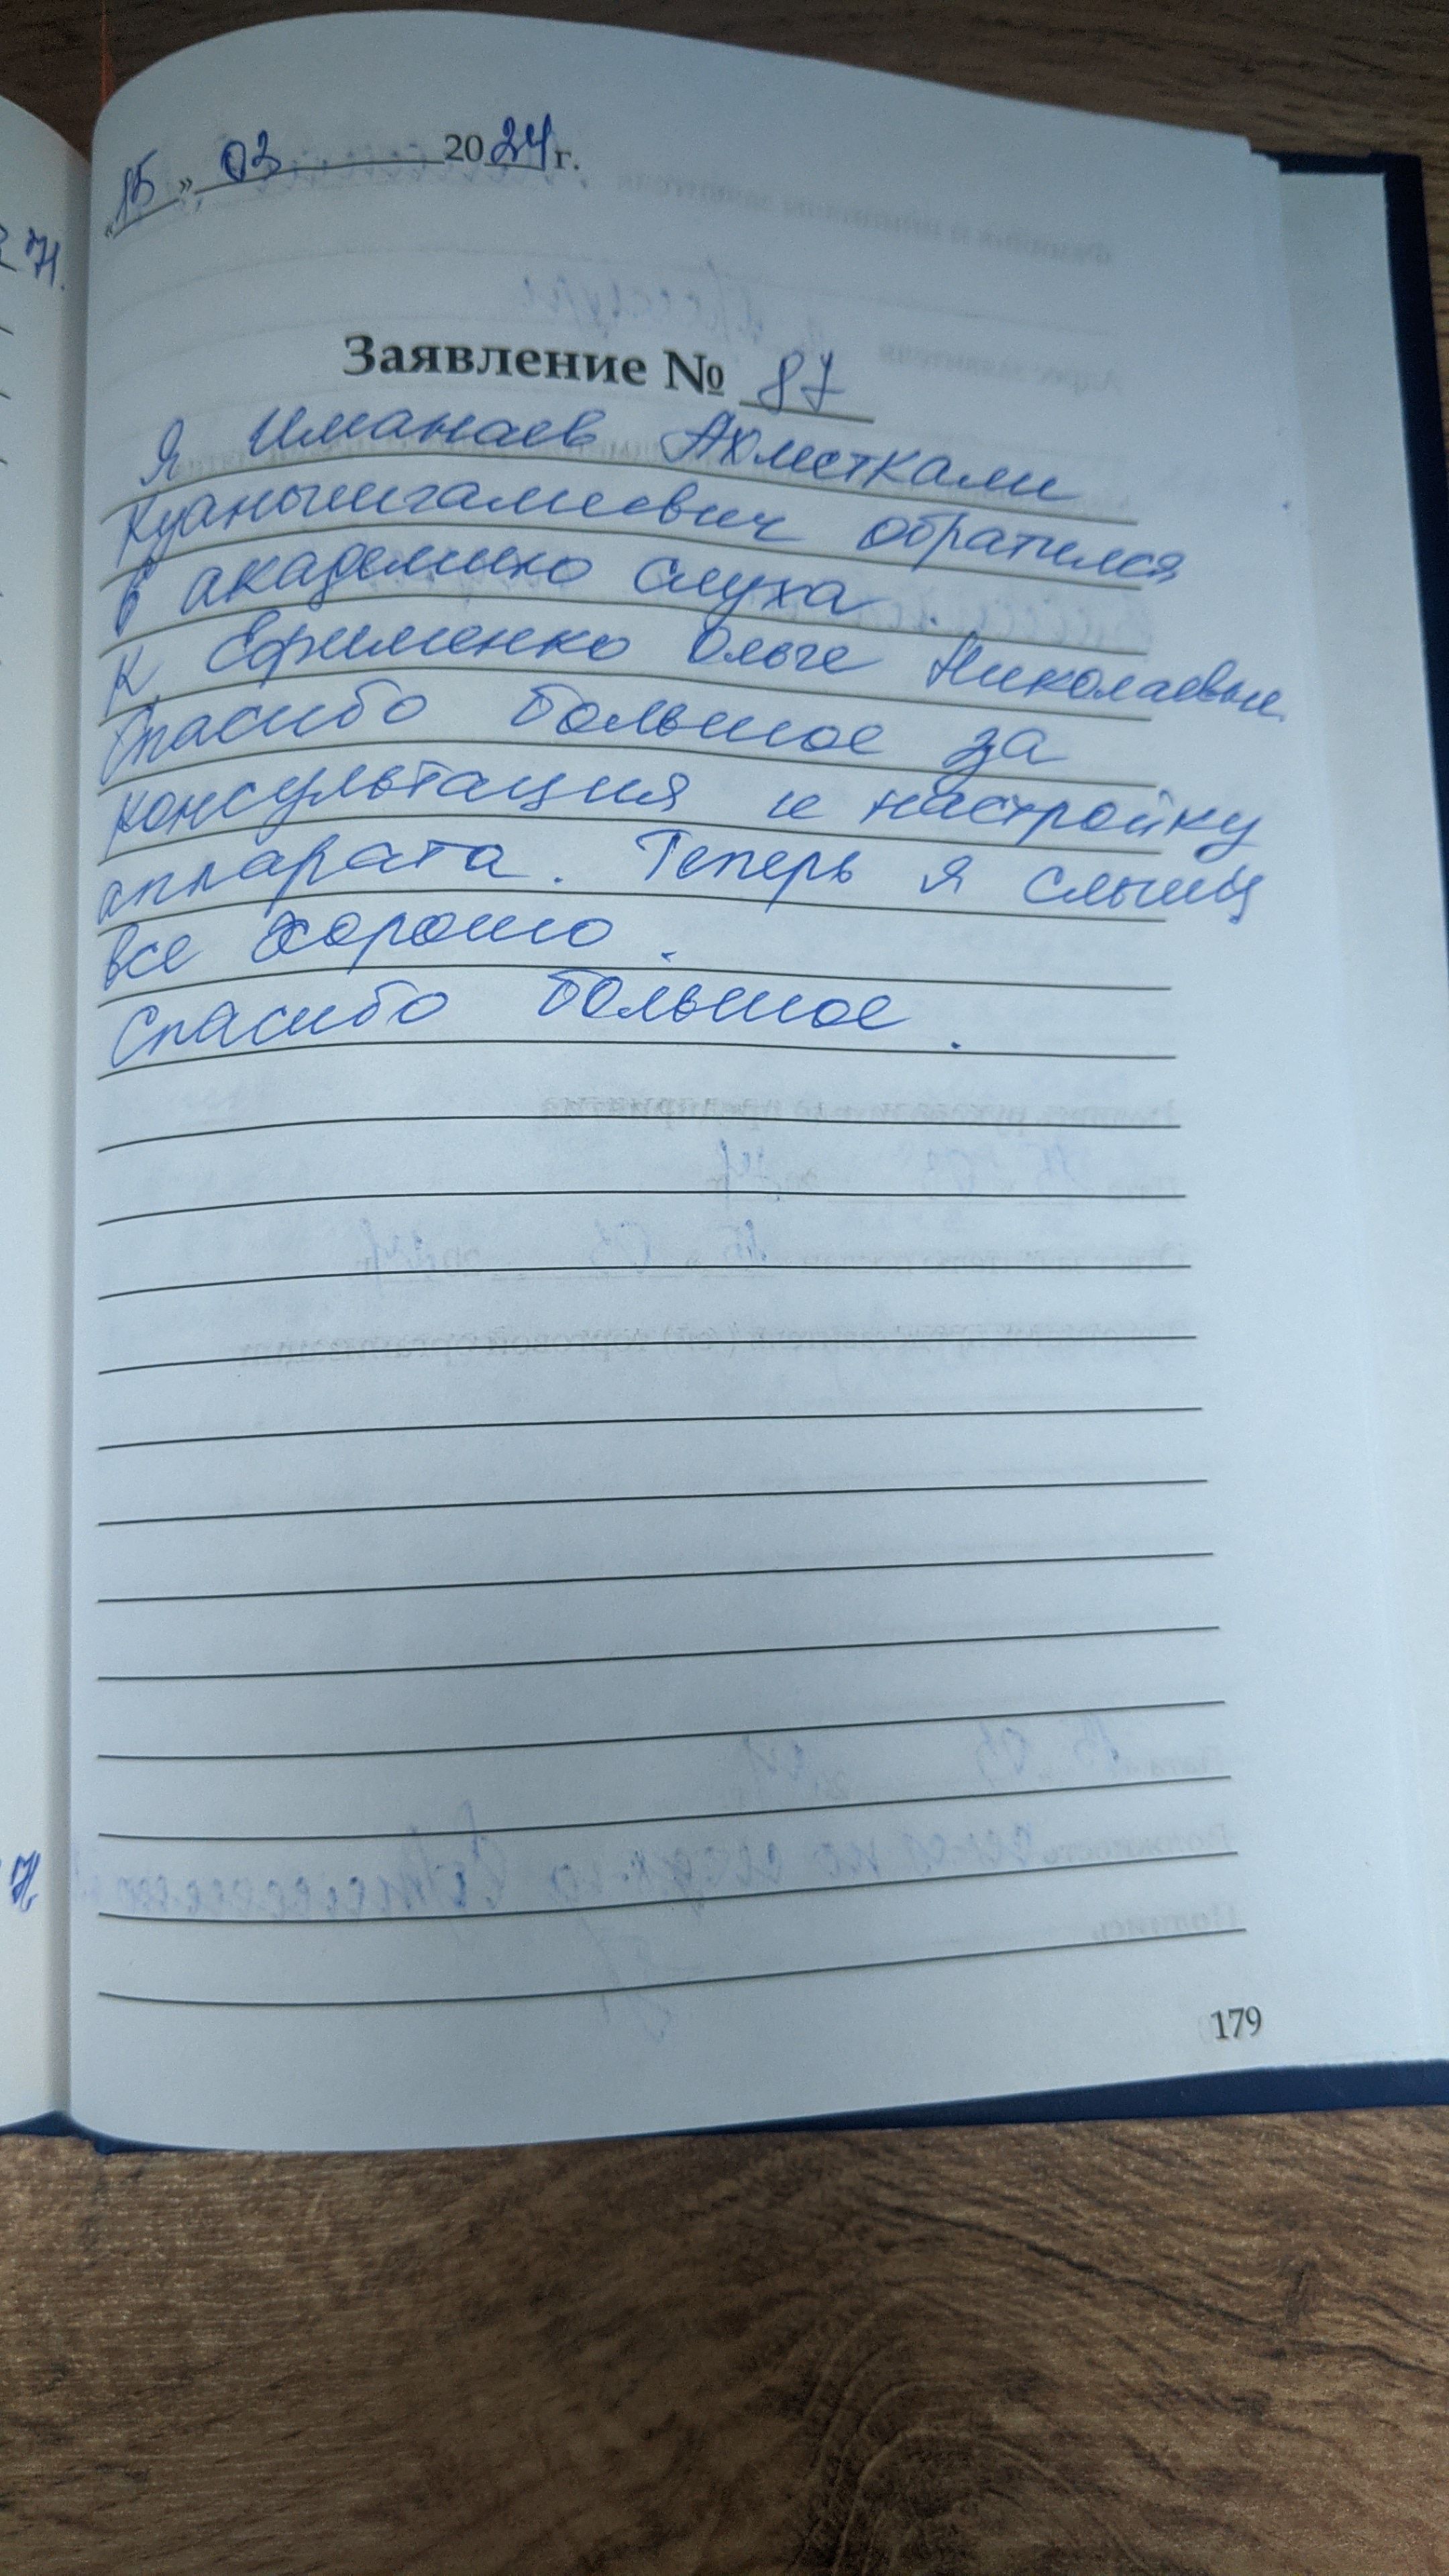 «15» 03 2024 г.
Заявление № 87
Я Иманаев Ахметкали
Куанышгалиевич обратился
в академию слуха
к Ефименко Ольге Николаевне
Спасибо большое за
консультация и настройку
аппарата. Теперь я слышу
все хорошо.
Спасибо большое.
179